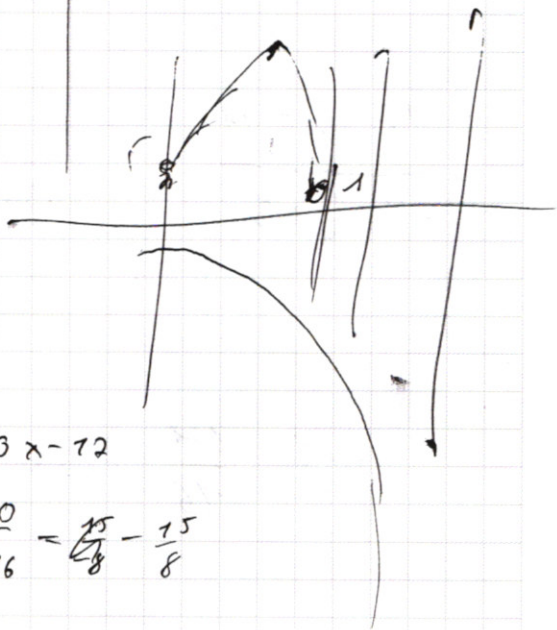 1
3 x - 12
0/6 = 15/8 - 15/8